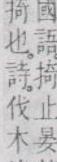 國語掎止晏
掎也。詩。伐木